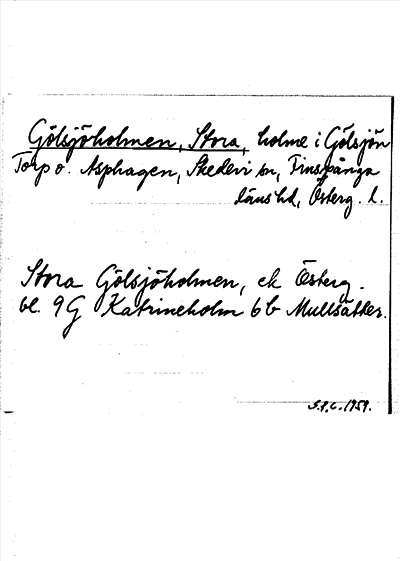 Gölsjöholmen, Stora, holme i Gölsjön
Torp o. Asphagen, Skedevi sn, Finspånga
läns hd, Österg. l.
Stora Gölsjöholmen, ek Österg.
bl. 9G Katrineholm 6b Mullsätter.
1959.